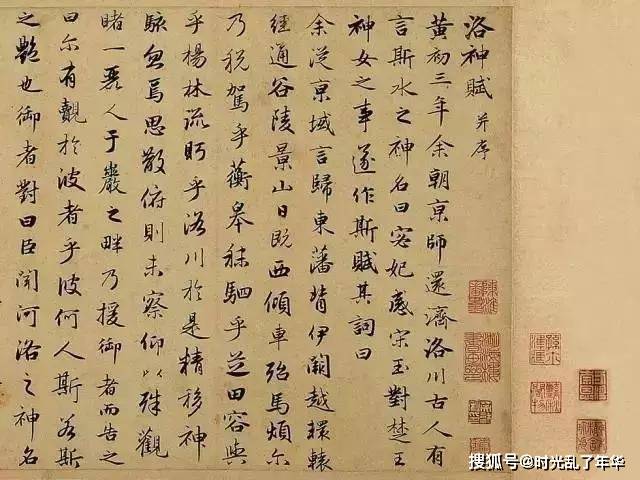 洛神賦 并序
黃初三年余朝京師還濟洛川古人有
言斯水之神名曰宓妃感宋玉對楚王
神女之事遂作斯賦其詞曰
余從京域言歸東藩背伊闕越轘轅
經通谷陵景山日既西傾車殆馬煩尔
乃税駕乎蘅皋秣駟乎芝田容與
乎楊林流眄乎洛川於是精移神
駭忽焉思散俯則未察仰以殊觀
睹一麗人于巖之畔乃援御者而告之
曰尔有覿於彼者乎彼何人斯若斯
之艷也御者對曰臣聞河洛之神名
搜狐号@时光乱了年华